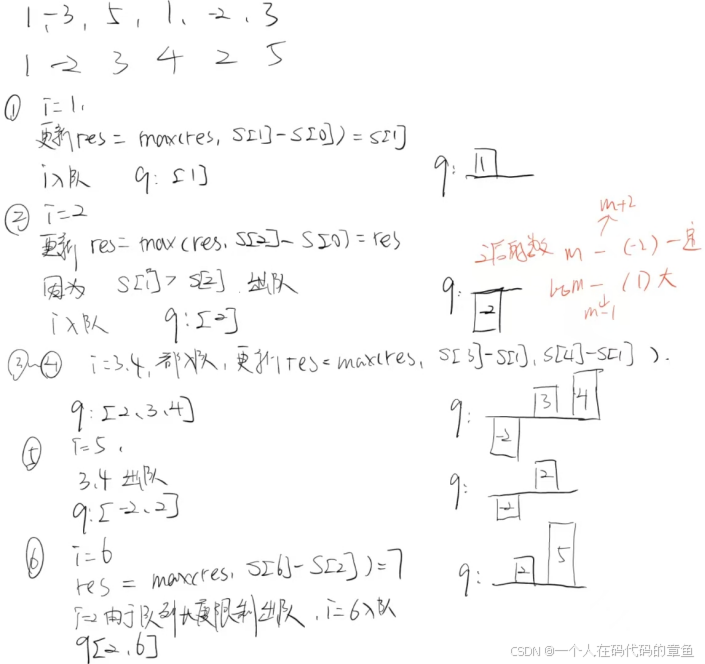 1, -3, 5, 1, -2, 3
1 -2 3 4 2 5
① i=1,
更新res= max(res, S[1]-S[0])=S[1]
i入队 q: [1]
q: 1
② i=2
更新 res= max(res, S[2]-S[0])=res
因为 S[1]>S[2] 出队
i入队 q: [2]
q: -2
m+2
之后的数 m - (-2) 一定
比m - (1) 大
m-1
③~④ i=3.4, 都入队, 更新res=max(res, S[3]-S[1], S[4]-S[1] ).
q: [2、3、4]
q: -2 3 4
⑤ i=5,
3、4 出队
q: [-2、2]
q: -2 2
⑥ i=6
res = max(res, S[6]-S[2])=7
i=2由于队列长度限制出队, i=6入队
q[2、6]
q: 2 5
CSDN @一个人在码代码的章鱼